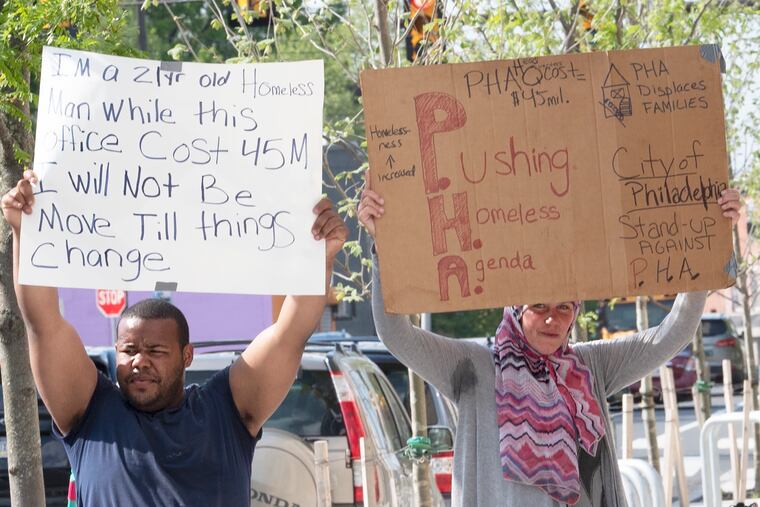 I'm a 21yr old Homeless
Man While this
office Cost 45M
I will Not Be
Move Till things
Change
PHA HQ cost=
$45mil.
Homeless-
ness
↑
increased
P.ushing
H.omeless
A.genda
PHA
Displaces
FAMILIES
City of
Philadelphia
Stand-up
AGAINST
P.H.A.
STOP
HONDA